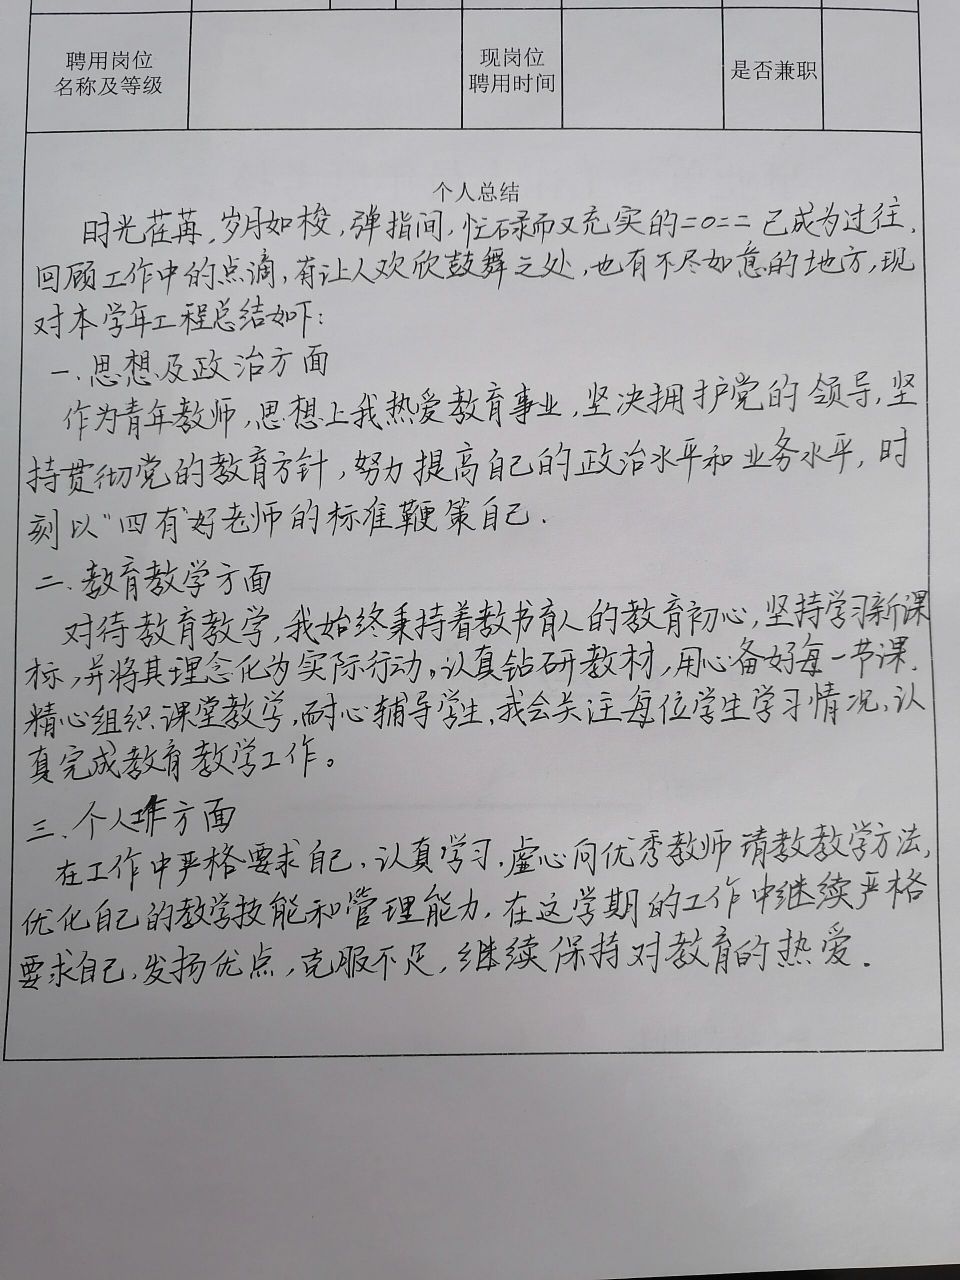 聘用岗位
名称及等级
现岗位
聘用时间
是否兼职
个人总结
时光荏苒,岁月如梭,弹指间,忙碌而又充实的二0二二已成为过往,
回顾工作中的点滴,有让人欢欣鼓舞之处,也有不尽如意的地方,现
对本学年工程总结如下:
一、思想及政治方面
作为青年教师,思想上我热爱教育事业,坚决拥护党的领导,坚
持贯彻党的教育方针,努力提高自己的政治水平和业务水平,时
刻以“四有”好老师的标准鞭策自己.
二、教育教学方面
对待教育教学,我始终秉持着教书育人的教育初心,坚持学习新课
标,并将其理念化为实际行动。认真钻研教材,用心备好每一节课.
精心组织课堂教学,耐心辅导学生,我会关注每位学生学习情况,认
真完成教育教学工作。
三、个人工作方面
在工作中严格要求自己,认真学习,虚心向优秀教师请教教学方法,
优化自己的教学技能和管理能力,在这学期的工作中继续严格
要求自己,发扬优点,克服不足,继续保持对教育的热爱.